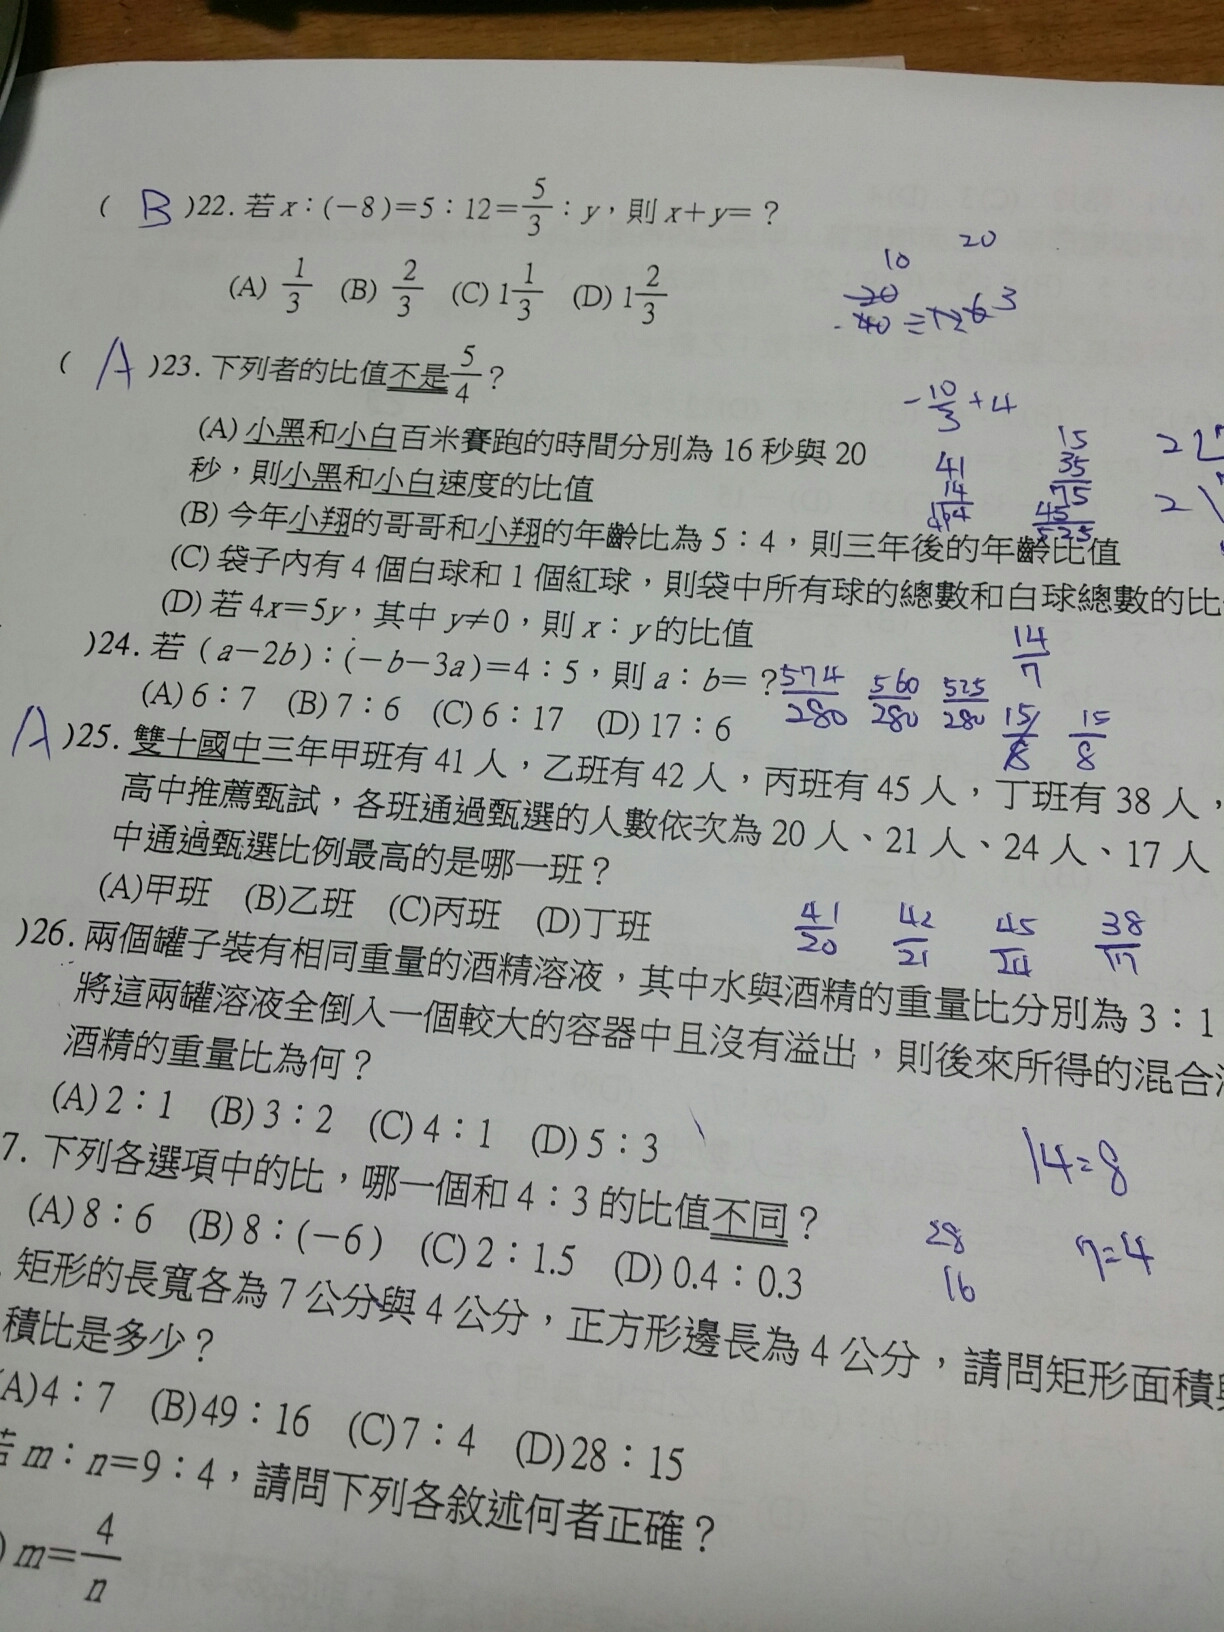 ( B )22. 若 x：(－8)＝5：12＝5/3：y，則 x＋y＝？
(A) 1/3 (B) 2/3 (C) 1 1/3 (D) 1 2/3
10 20
( A )23. 下列者的比值不是 5/4？
－10/3＋4
(A) 小黑和小白百米賽跑的時間分別為 16 秒與 20
秒，則小黑和小白速度的比值
41 15
14 35
75
45
525
(B) 今年小翔的哥哥和小翔的年齡比為 5：4，則三年後的年齡比值
(C) 袋子內有 4 個白球和 1 個紅球，則袋中所有球的總數和白球總數的比
(D) 若 4x＝5y，其中 y≠0，則 x：y 的比值
14/7
)24. 若 (a－2b)：(－b－3a)＝4：5，則 a：b＝？
574/280 560/280 525/280 15/8 15/8
(A) 6：7 (B) 7：6 (C) 6：17 (D) 17：6
A )25. 雙十國中三年甲班有 41 人，乙班有 42 人，丙班有 45 人，丁班有 38 人，
高中推薦甄試，各班通過甄選的人數依次為 20 人、21 人、24 人、17 人
中通過甄選比例最高的是哪一班？
(A)甲班 (B)乙班 (C)丙班 (D)丁班
41/20 42/21 45/24 38/17
)26. 兩個罐子裝有相同重量的酒精溶液，其中水與酒精的重量比分別為 3：1
將這兩罐溶液全倒入一個較大的容器中且沒有溢出，則後來所得的混合
酒精的重量比為何？
(A) 2：1 (B) 3：2 (C) 4：1 (D) 5：3
14=8
7. 下列各選項中的比，哪一個和 4：3 的比值不同？
(A) 8：6 (B) 8：(－6) (C) 2：1.5 (D) 0.4：0.3
28
16
7=4
矩形的長寬各為 7 公分與 4 公分，正方形邊長為 4 公分，請問矩形面積與
積比是多少？
(A)4：7 (B)49：16 (C)7：4 (D)28：15
若 m：n＝9：4，請問下列各敘述何者正確？
) m＝4/n